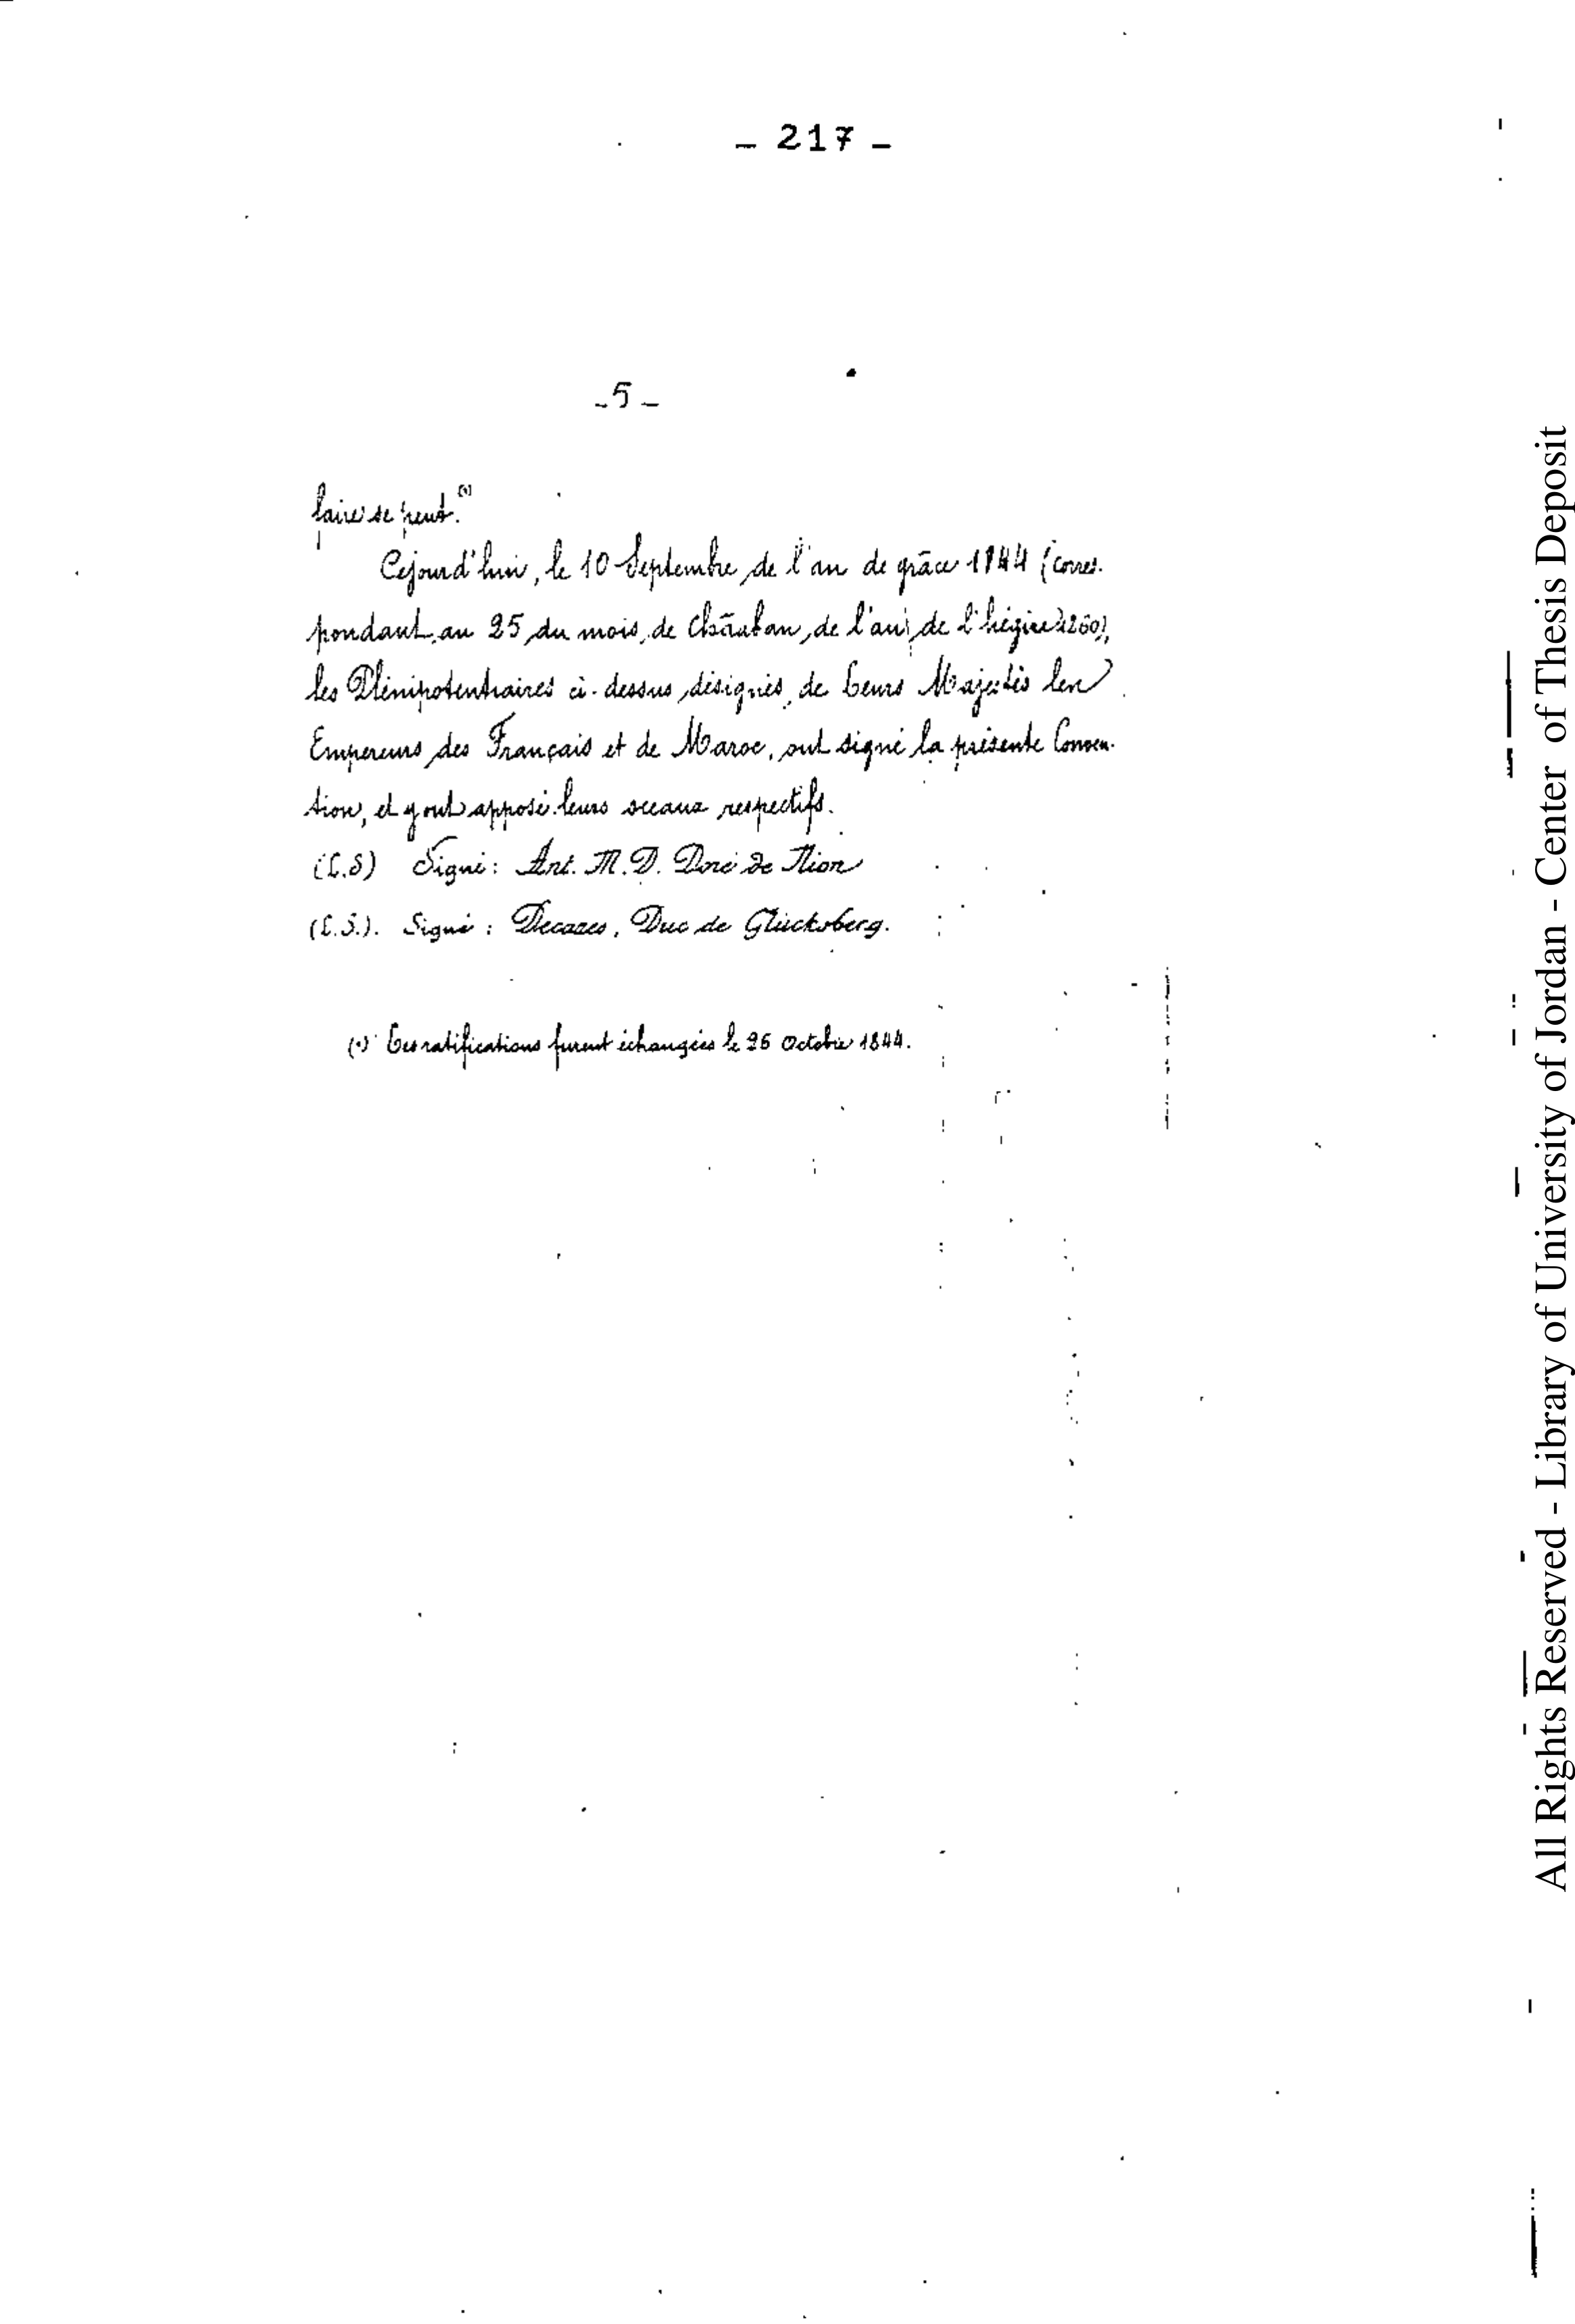 - 217 -
- 5 -
faire se peut. (1)
Cejourd'hui, le 10 Septembre de l'an de grâce 1844 (corres-
pondant au 25 du mois de Châaban, de l'an de l'hégire 1260),
les Plénipotentiaires ci-dessus désignés de Leurs Majestés les
Empereurs des Français et de Maroc, ont signé la présente Conven-
tion, et y ont apposé leurs sceaux respectifs.
(L.S) Signé : Ant. M. D. Doré de Nion
(L.S.). Signé : Decazes, Duc de Glücksberg.
(1) Les ratifications furent échangées le 26 Octobre 1844.
All Rights Reserved - Library of University of Jordan - Center of Thesis Deposit